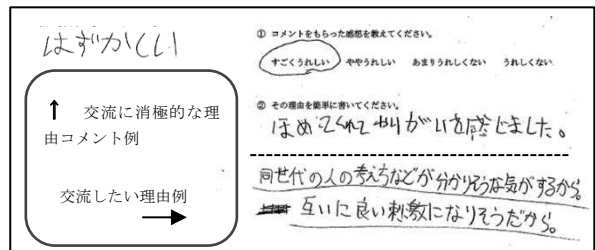 はずかしい
↑ 交流に消極的な理
由コメント例
交流したい理由例
① コメントをもらった感想を教えてください。
すごくうれしい ややうれしい あまりうれしくない うれしくない
② その理由を簡単に書いてください。
ほめてくれてやりがいを感じました。
同世代の人の考えちなどが分かりそうな気がするから。
互いに良い刺激になりそうだから。